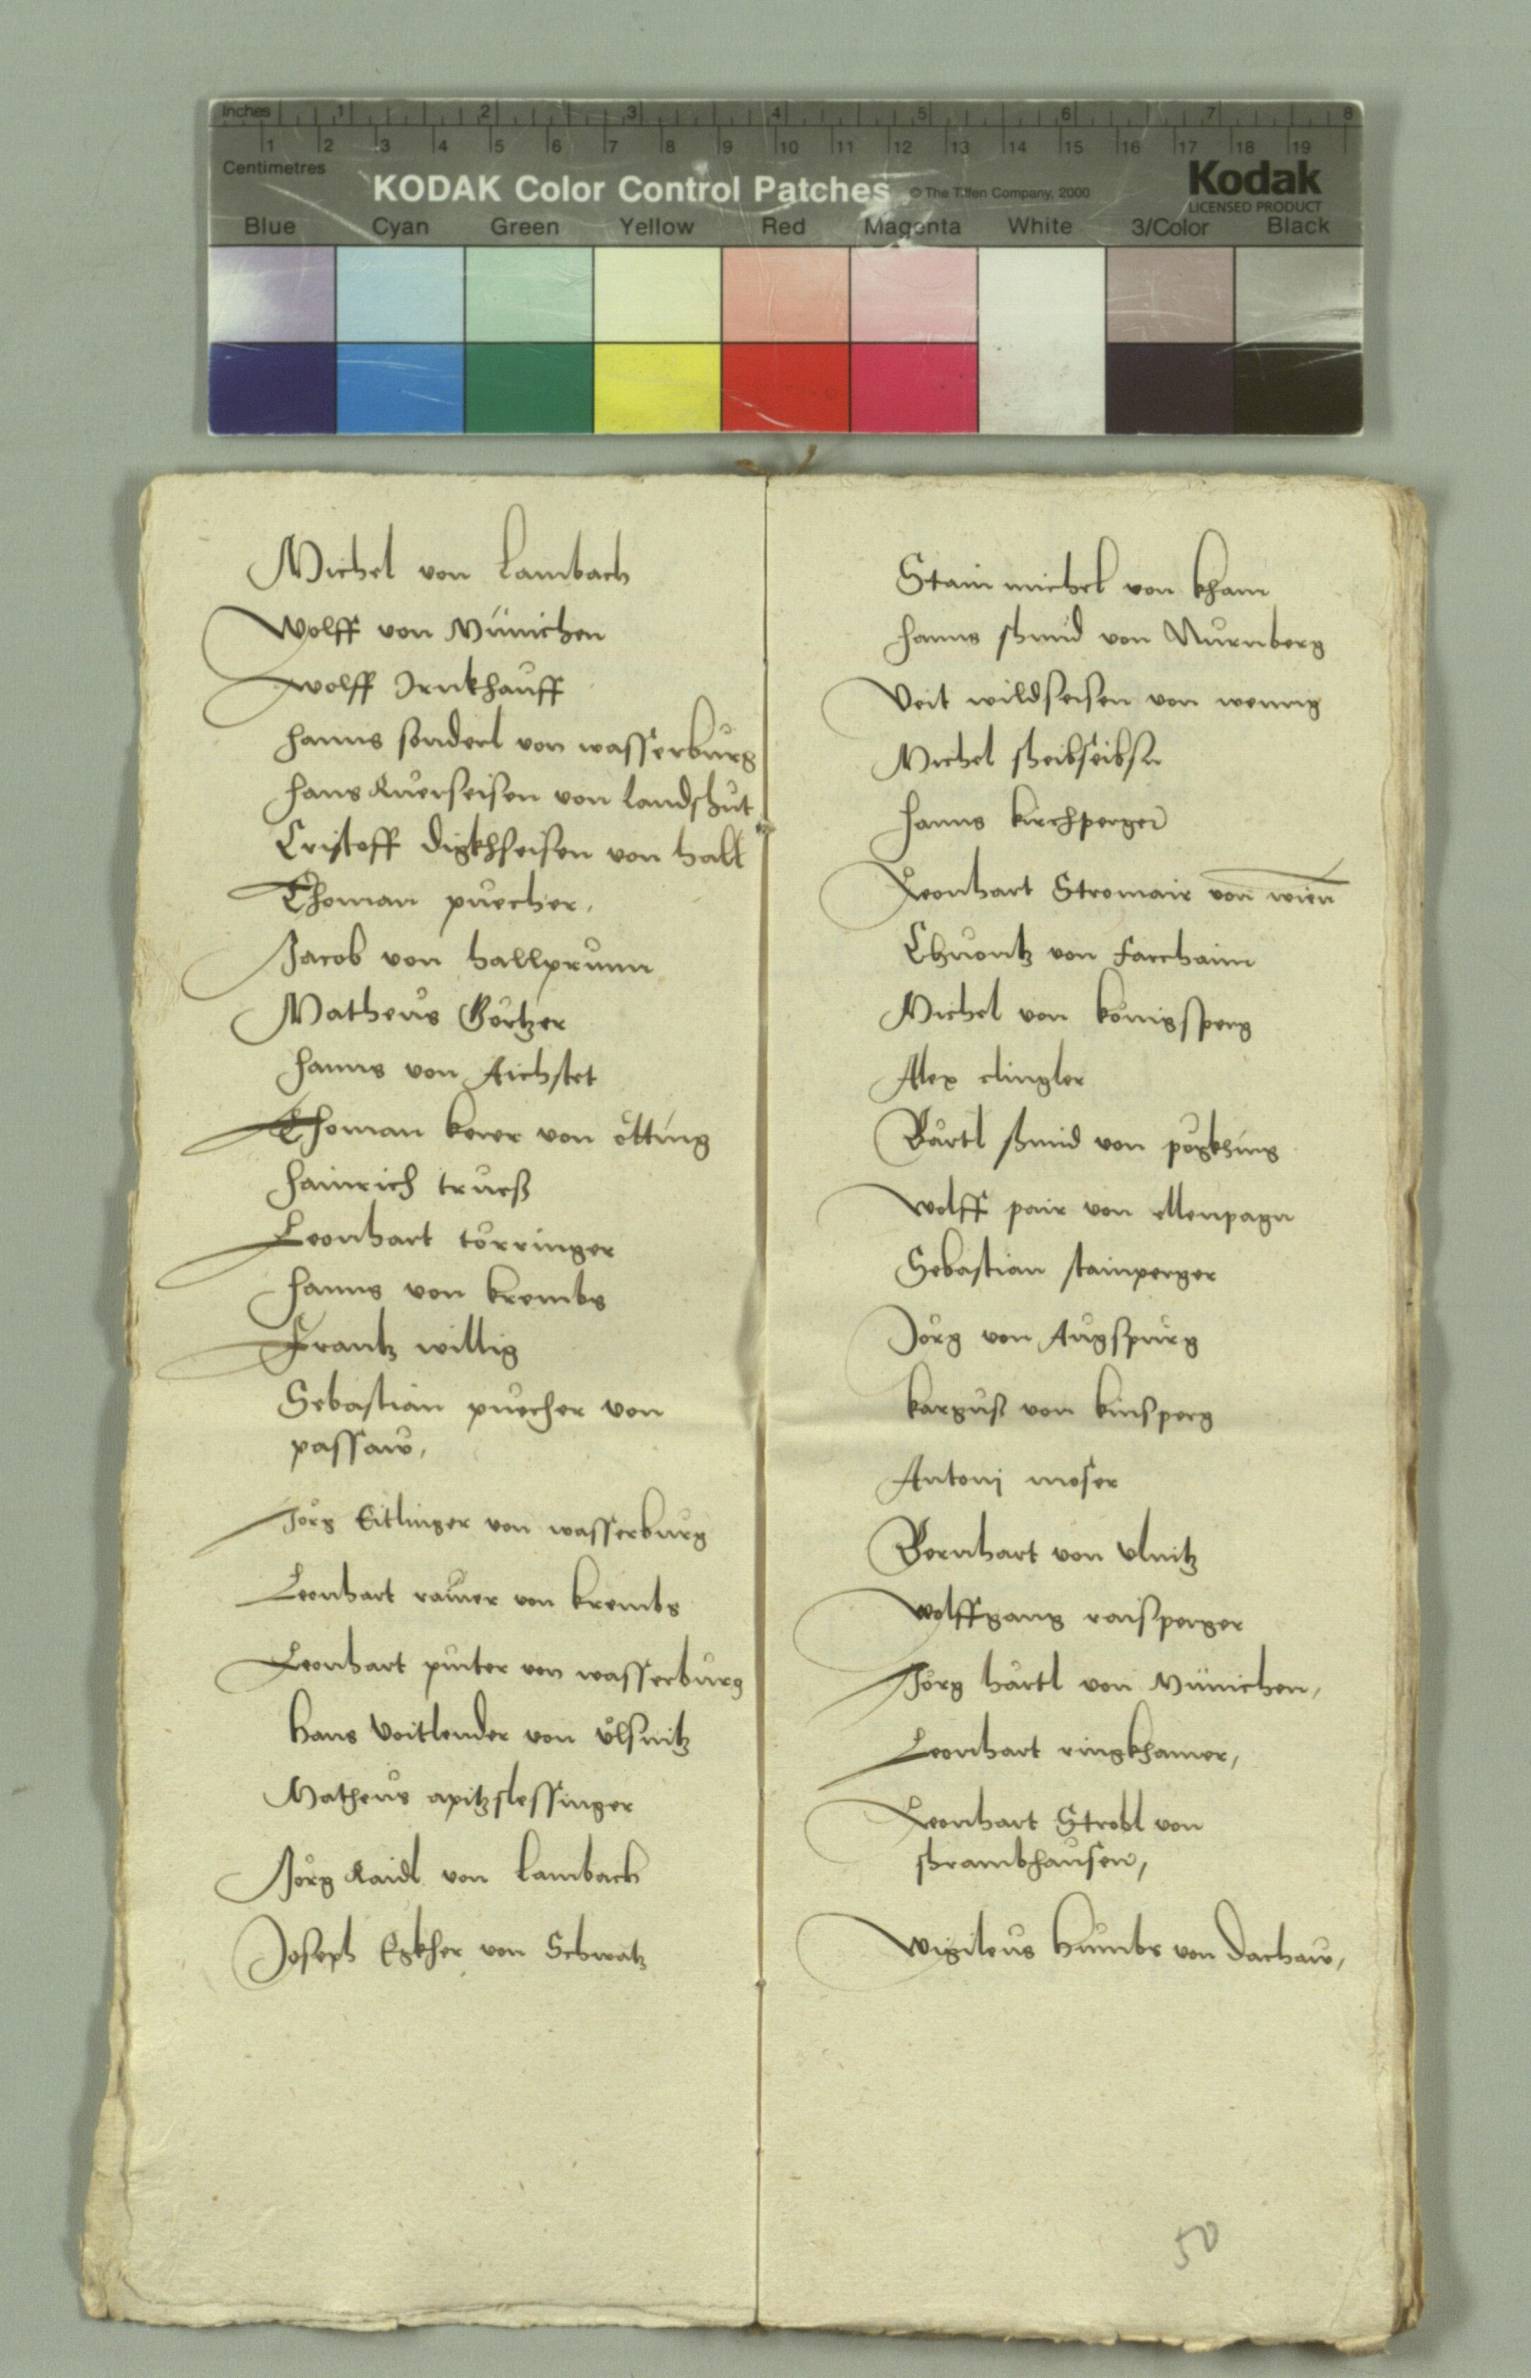 Inches 1 2 3 4 5 6 7 8
1 2 3 4 5 6 7 8 9 10 11 12 13 14 15 16 17 18 19
Centimetres
KODAK Color Control Patches © The Tiffen Company, 2000
Kodak
LICENSED PRODUCT
Blue Cyan Green Yellow Red Magenta White 3/Color Black
Michel von Lambach
Wolff von Münichen
Wolff Irnkhauff
Hanns sonderl von wasserburg
Hans von landshut
Cristoff digkheisen von hall
Thoman puecher,
Jacob von hallprunn
Matheus Görtzer
Hanns von Aichstet
Thoman kerer von ötting
Hainrich trueß
Leonhart törringer
Hanns von krembs
Frantz willig
Sebastian puecher von
passaw,
Jörg Eitlinger von wasserburg
Leonhart rawer von krembs
Leonhart pinter von wasserburg
Hans Voitlender von ölsnitz
Matheus
Jörg Raidl von Lambach
Joseph Egkher von Schwatz
Stain michel von kham
Hanns shmid von Nurnberg
Veit wildseisen von wenng
Michel
Hanns kirchperger
Leonhart Stromair von wien
Chuontz von Farchaim
Michel von königsperg
Alex clingler
Bärtl shmid von pögkhing
Wolff pair von ellenpagn
Sebastian stainperger
Jörg von Augspurg
karguß von kinsperg
Antonj moser
Bernhart von Ulnitz
Wolffgang raisperger
Jörg härtl von Münichen,
Leonhart ringkhamer,
Leonhart Strobl von
shrambhausen,
Wigileus Humbs von Dachaw,
50